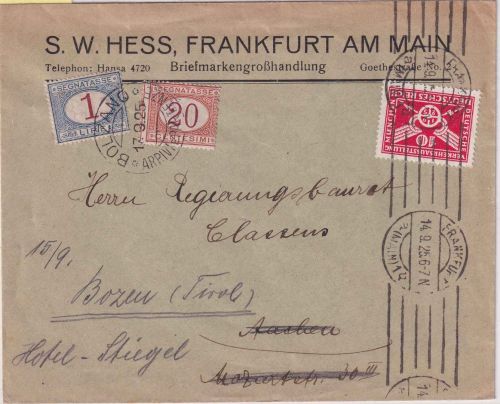 S. W. HESS, FRANKFURT AM MAIN
Telephon: Hansa 4720 Briefmarkengroßhandlung Goethestraße No.
SEGNATASSE
1
LIRE
SEGNATASSE
20
CENTESIMI
BOLZANO
ARPIN
9.25
DEUTSCHE
VERKEHRSAUSSTELLUNG
MÜNCHEN
DEUTSCHES REICH
10
FRANKFURT
(MAIN)
14.9.25.6-7N
Herrn Regierungsbaurat
Classens
15/9.
Bozen (Tirol)
Aachen
Hotel - Stiegel
Mozartstr. 30 III